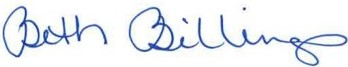 Beth Billings